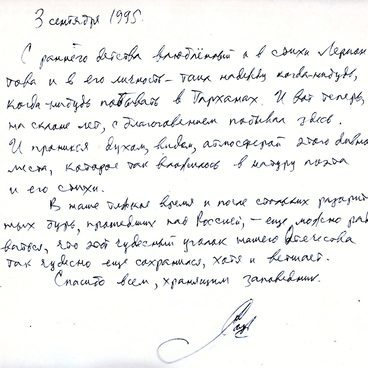 3 сентября 1995.
С раннего детства влюблённый и в стихи Лермон
това и в его личность – таил надежду когда-нибудь,
когда-нибудь побывать в Тарханах. И вот теперь,
на склоне лет, с благоговением побывал здесь.
И проникся духом, видом, атмосферой этого дивного
места, которое так влилось в натуру поэта
и его стихи.
В наше тяжкое время и после стольких разрушитель
ных бурь, прошедших над Россией, – ещё можно радо
ваться, что этот чудесный уголок нашего Отечества
так чудесно ещё сохранился, хотя и ветшает.
Спасибо всем, хранящим заповедник.